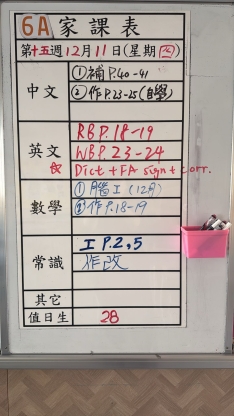 6A 家課表
第十五週12月11日(星期四)
中文
①補P.40-41
②作P.23-25(自學)
英文
RBP.18-19
WBP.23-24
Dict+FA sign+corr.
數學
①腦工(12月)
②作P.18-19
常識
工P.2,5
作改
其它
值日生 28